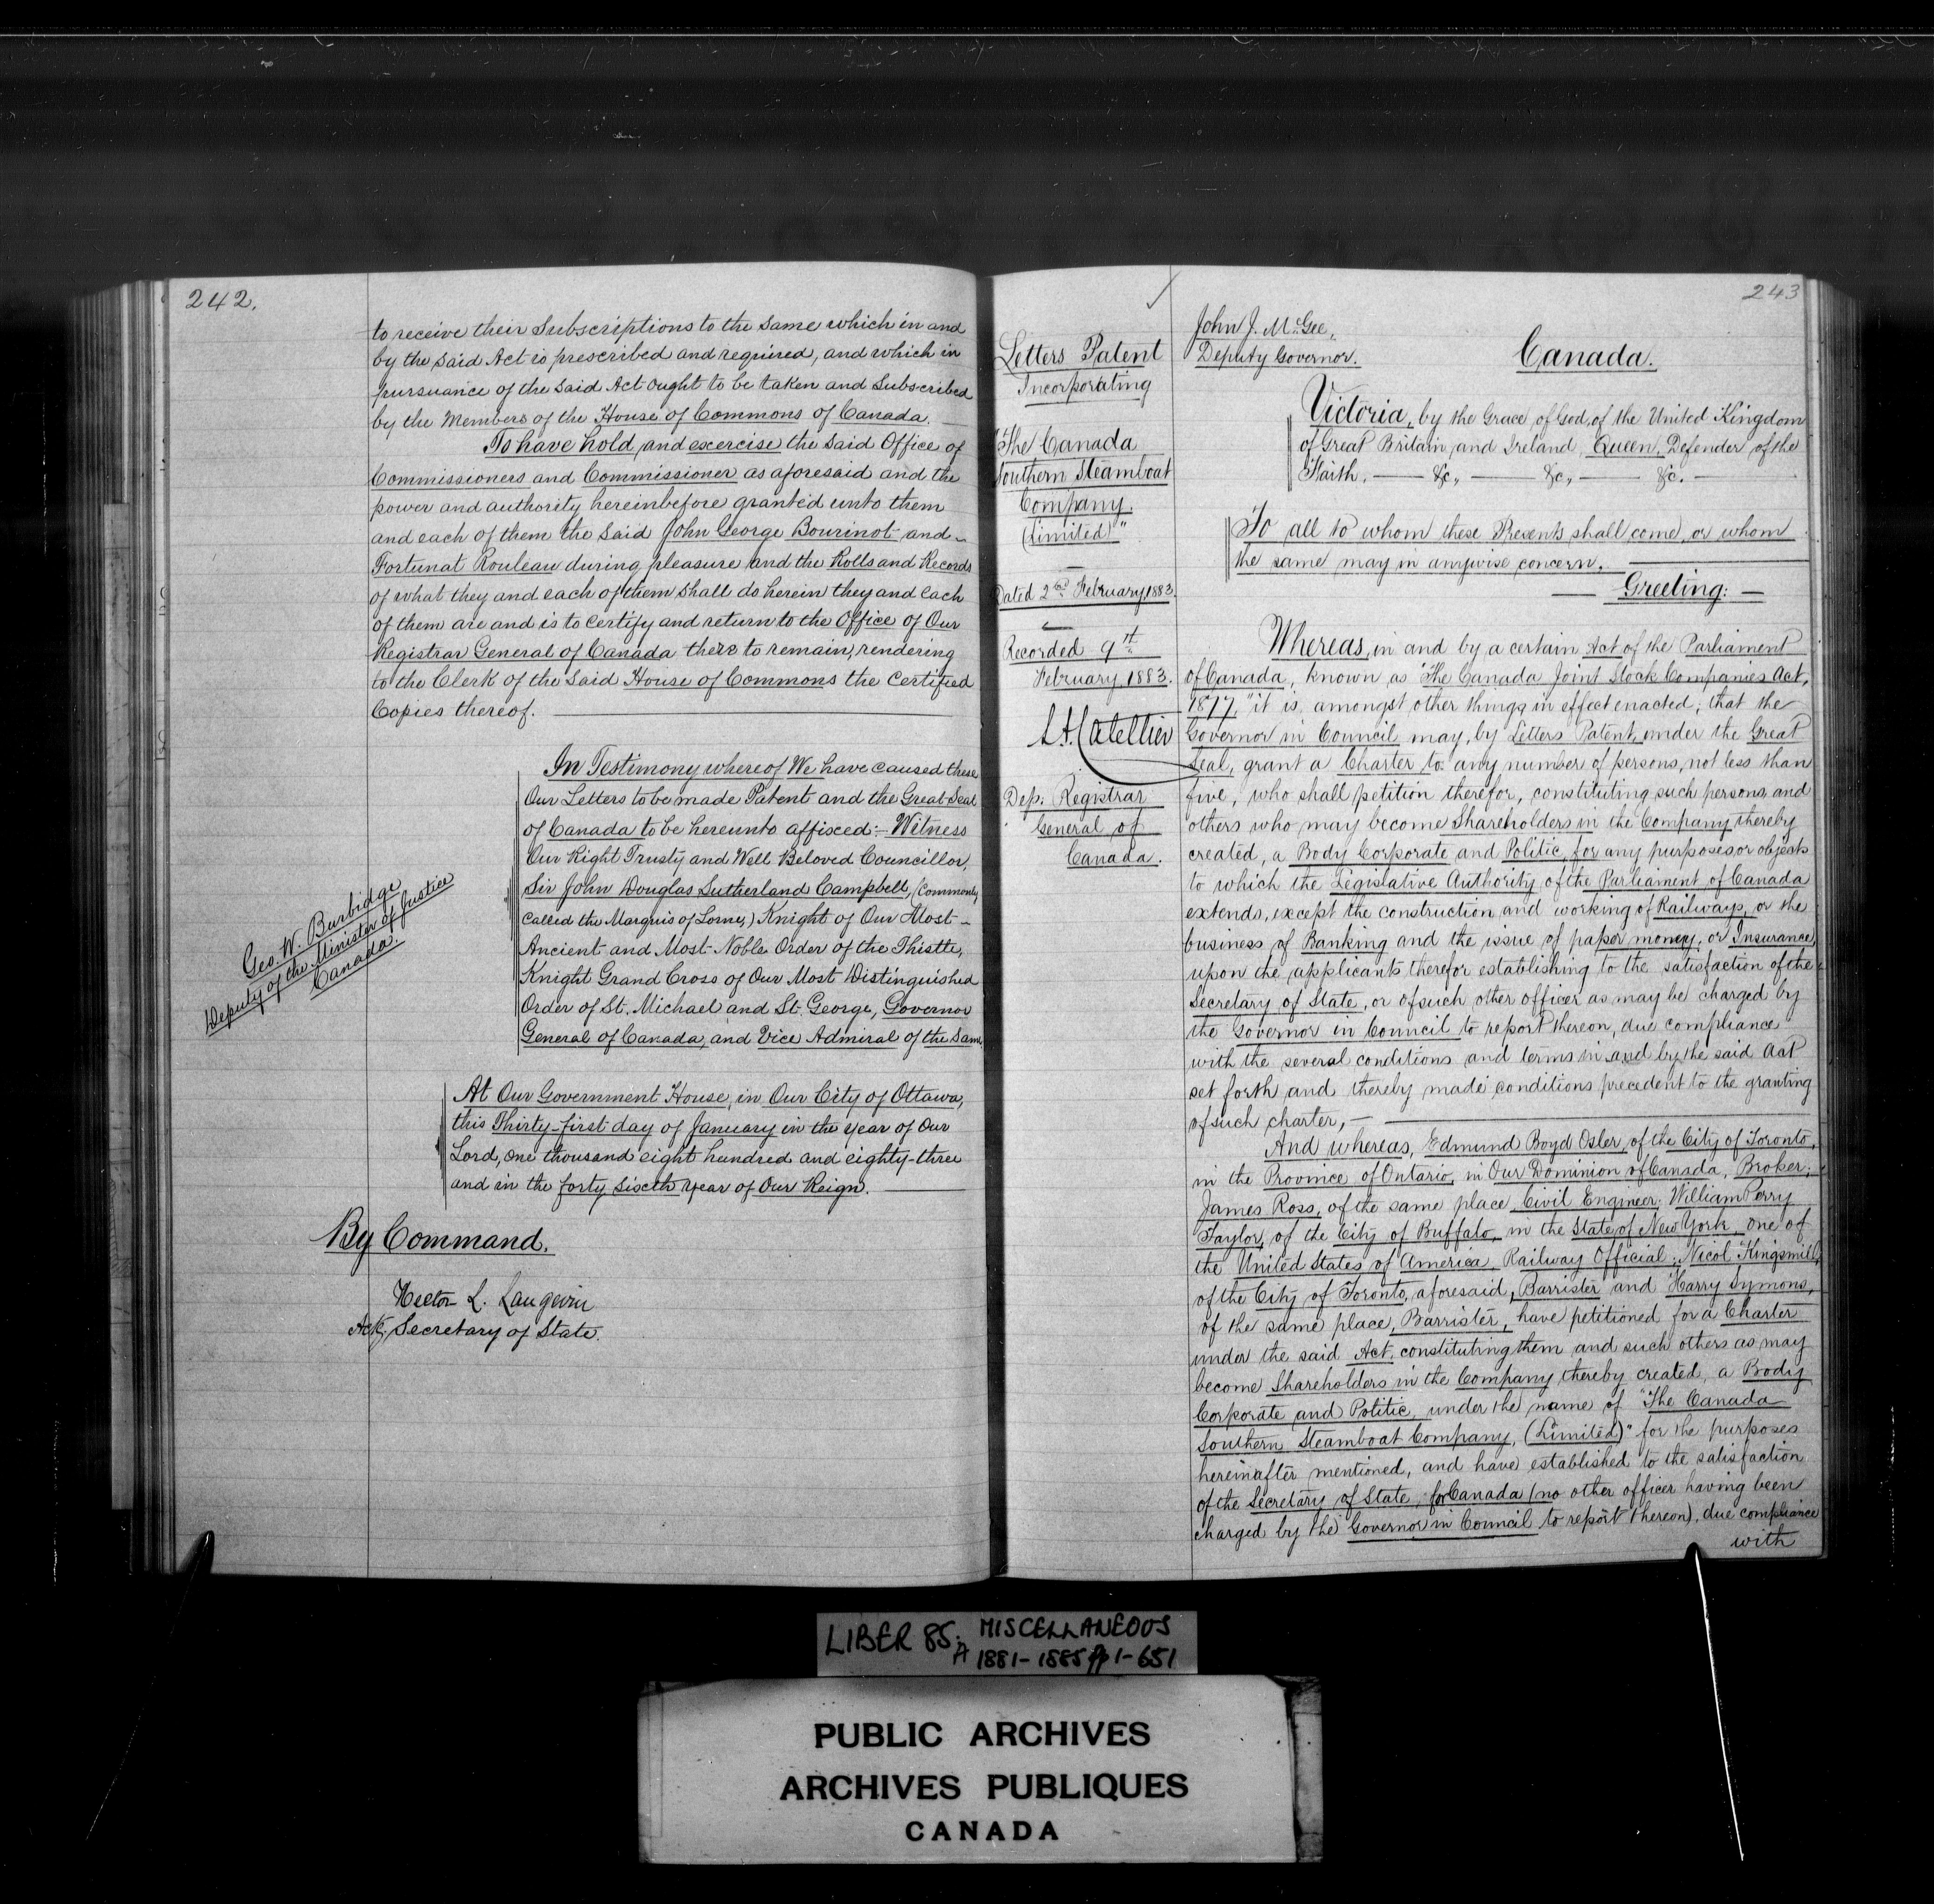 242.
to receive their Subscriptions to the same which in and
by the said Act is prescribed and required, and which in
pursuance of the said Act ought to be taken and Subscribed
by the Members of the House of Commons of Canada.
To have hold and exercise the said Office of
Commissioners and Commissioner as aforesaid and the
power and authority hereinbefore granted unto them
and each of them the said John George Bourinot and
Fortunat Rouleau during pleasure and the Rolls and Records
of what they and each of them shall do herein they and each
of them are and is to certify and return to the Office of Our
Registrar General of Canada there to remain, rendering
to the Clerk of the said House of Commons the certified
Copies thereof.
In Testimony whereof We have caused these
Our Letters to be made Patent and the Great Seal
of Canada to be hereunto affixed:- Witness
Our Right Trusty and Well Beloved Councillor,
Sir John Douglas Sutherland Campbell, (commonly
called the Marquis of Lorne,) Knight of Our Most
Ancient and Most Noble Order of the Thistle,
Knight Grand Cross of Our Most Distinguished
Order of St. Michael and St. George, Governor
General of Canada, and Vice Admiral of the same.
Geo. W. Burbidge
Deputy of the Minister of Justice
Canada.
At Our Government House, in Our City of Ottawa,
this Thirty-first day of January in the year of Our
Lord, one thousand eight hundred and eighty-three
and in the forty sixth year of Our Reign.
By Command.
Hector L. Langevin
Actg. Secretary of State.
243
Letters Patent
Incorporating
"The Canada
Southern Steamboat
Company.
(Limited)"
Dated 2nd February, 1883.
Recorded 9th
February, 1883.
Dep. Registrar
General of
Canada.
John J. McGee,
Deputy Governor.
Canada.
Victoria, by the Grace of God, of the United Kingdom
of Great Britain and Ireland Queen, Defender of the
Faith. — &c, — &c, — &c.
To all to whom these Presents shall come, or whom
the same may in anywise concern.
— Greeting: —
Whereas, in and by a certain Act of the Parliament
of Canada, known as "The Canada Joint Stock Companies Act,
1877," it is, amongst other things, in effect enacted; that the
Governor in Council may, by Letters Patent, under the Great
Seal, grant a Charter to any number of persons, not less than
five, who shall petition therefor, constituting such persons and
others who may become Shareholders in the Company thereby
created, a Body Corporate and Politic, for any purposes or objects
to which the Legislative Authority of the Parliament of Canada
extends, except the construction and working of Railways, or the
business of Banking and the issue of paper money, or Insurance,
upon the applicants therefor establishing to the satisfaction of the
Secretary of State, or of such other officer as may be charged by
the Governor in Council to report thereon, due compliance
with the several conditions and terms in and by the said Act
set forth and thereby made conditions precedent to the granting
of such charter, —
And whereas, Edmund Boyd Osler, of the City of Toronto,
in the Province of Ontario, in Our Dominion of Canada, Broker;
James Ross, of the same place Civil Engineer; William Perry
Taylor, of the City of Buffalo, in the State of New York, one of
the United States of America, Railway Official; Nicol Kingsmill,
of the City of Toronto, aforesaid, Barrister and Harry Symons,
of the same place, Barrister, have petitioned for a Charter
under the said Act, constituting them and such others as may
become Shareholders in the Company thereby created, a Body
Corporate and Politic, under the name of "The Canada
Southern Steamboat Company, (Limited)" for the purposes
hereinafter mentioned, and have established to the satisfaction
of the Secretary of State, for Canada (no other officer having been
charged by the Governor in Council to report thereon), due compliance
with
LIBER 85. A MISCELLANEOUS
1881-1885 pp 1-651
PUBLIC ARCHIVES
ARCHIVES PUBLIQUES
CANADA